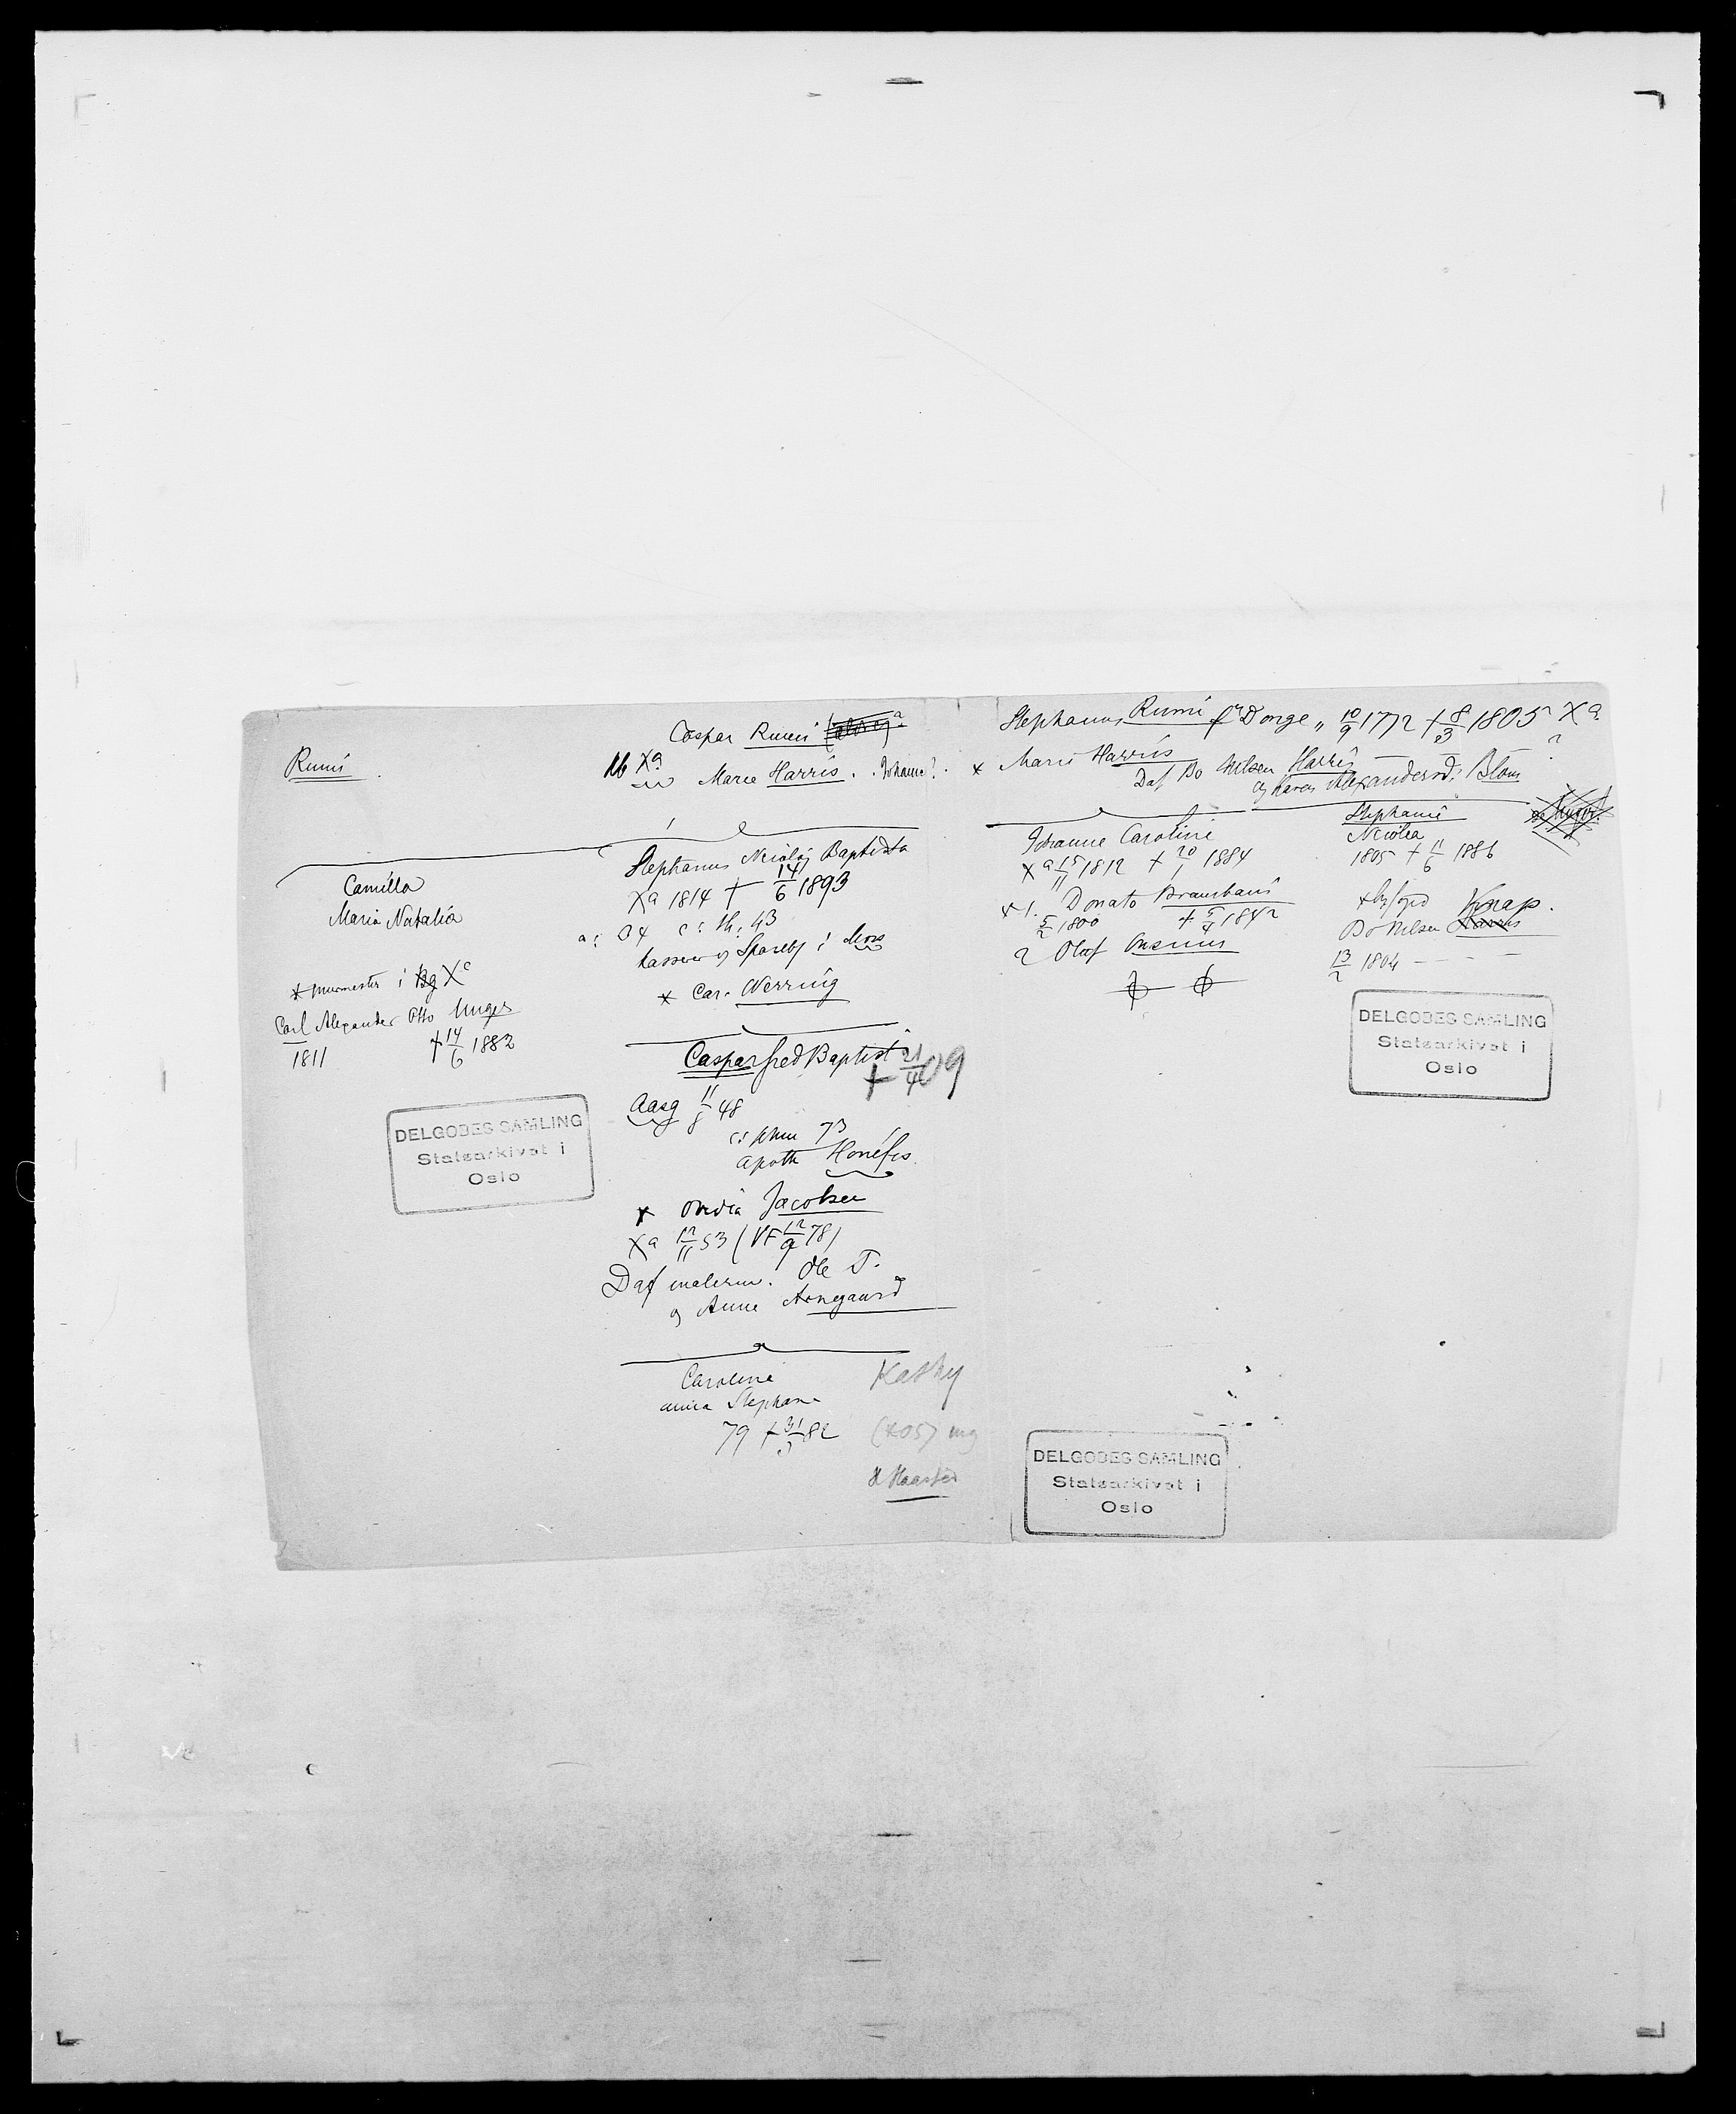 Rumi
Caspar Rumi
Xa
Maree Harris. Johanne?
Camilla
Maria Natalia
* murmester i Bg Xa
Carl Alexander Otto Unger
1811 † 14/6 1883
Stephanus Nicolaj Baptista
Xa 1814 † 14/6 1893
kasserer v Spareb i Moss
* Car. Werring
Caspar fred Baptist † 21/4 09
Aasg 11/8 48
73
apoth Hønefos
* Ovidia Jacobsen
Xa 12/11 53 (VF 12/9 78)
Daf malerm. Ole T.
og Anne Arnegaard
Caroline
anna Stephane
79 † 31/3 82
Kathy
(*05) mg
H Haasted
Stephanus Rumi fra Donge 10/9 1772 † 8/3 1805 Xa
* Marie Harris
Daf Bo Nilsen Harris
og Karen Alexandersd. Blom
Johanne Caroline
Xa 15/11 1812 † 20/1 1884
* 1. Donato Brambani
5/2 1800 † 5/4 1842
2 Oluf Onsum
Stephanie
Nicolea
1805 † 11/6 1886
* by fogd Knap.
Bo Nilsen Harris
13/2 1804 - - - -
DELGOBES SAMLING
Statsarkivet i
Oslo
DELGOBES SAMLING
Statsarkivet i
Oslo
DELGOBES SAMLING
Statsarkivet i
Oslo